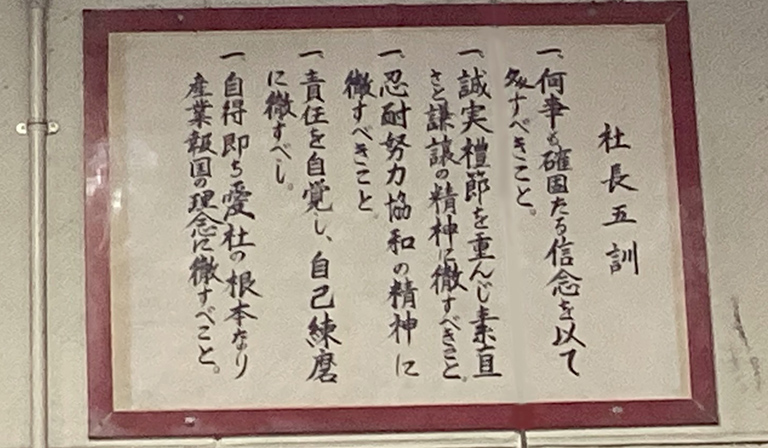 社長五訓
一、何事も確固たる信念を以て
処すべきこと。
一、誠実禮節を重んじ素直
さと謙譲の精神に徹すべきこと。
一、忍耐努力協和の精神に
徹すべきこと。
一、責任を自覚し、自己練磨
に徹すべし。
一、自得即ち愛社の根本なり
産業報国の理念に徹すべこと。